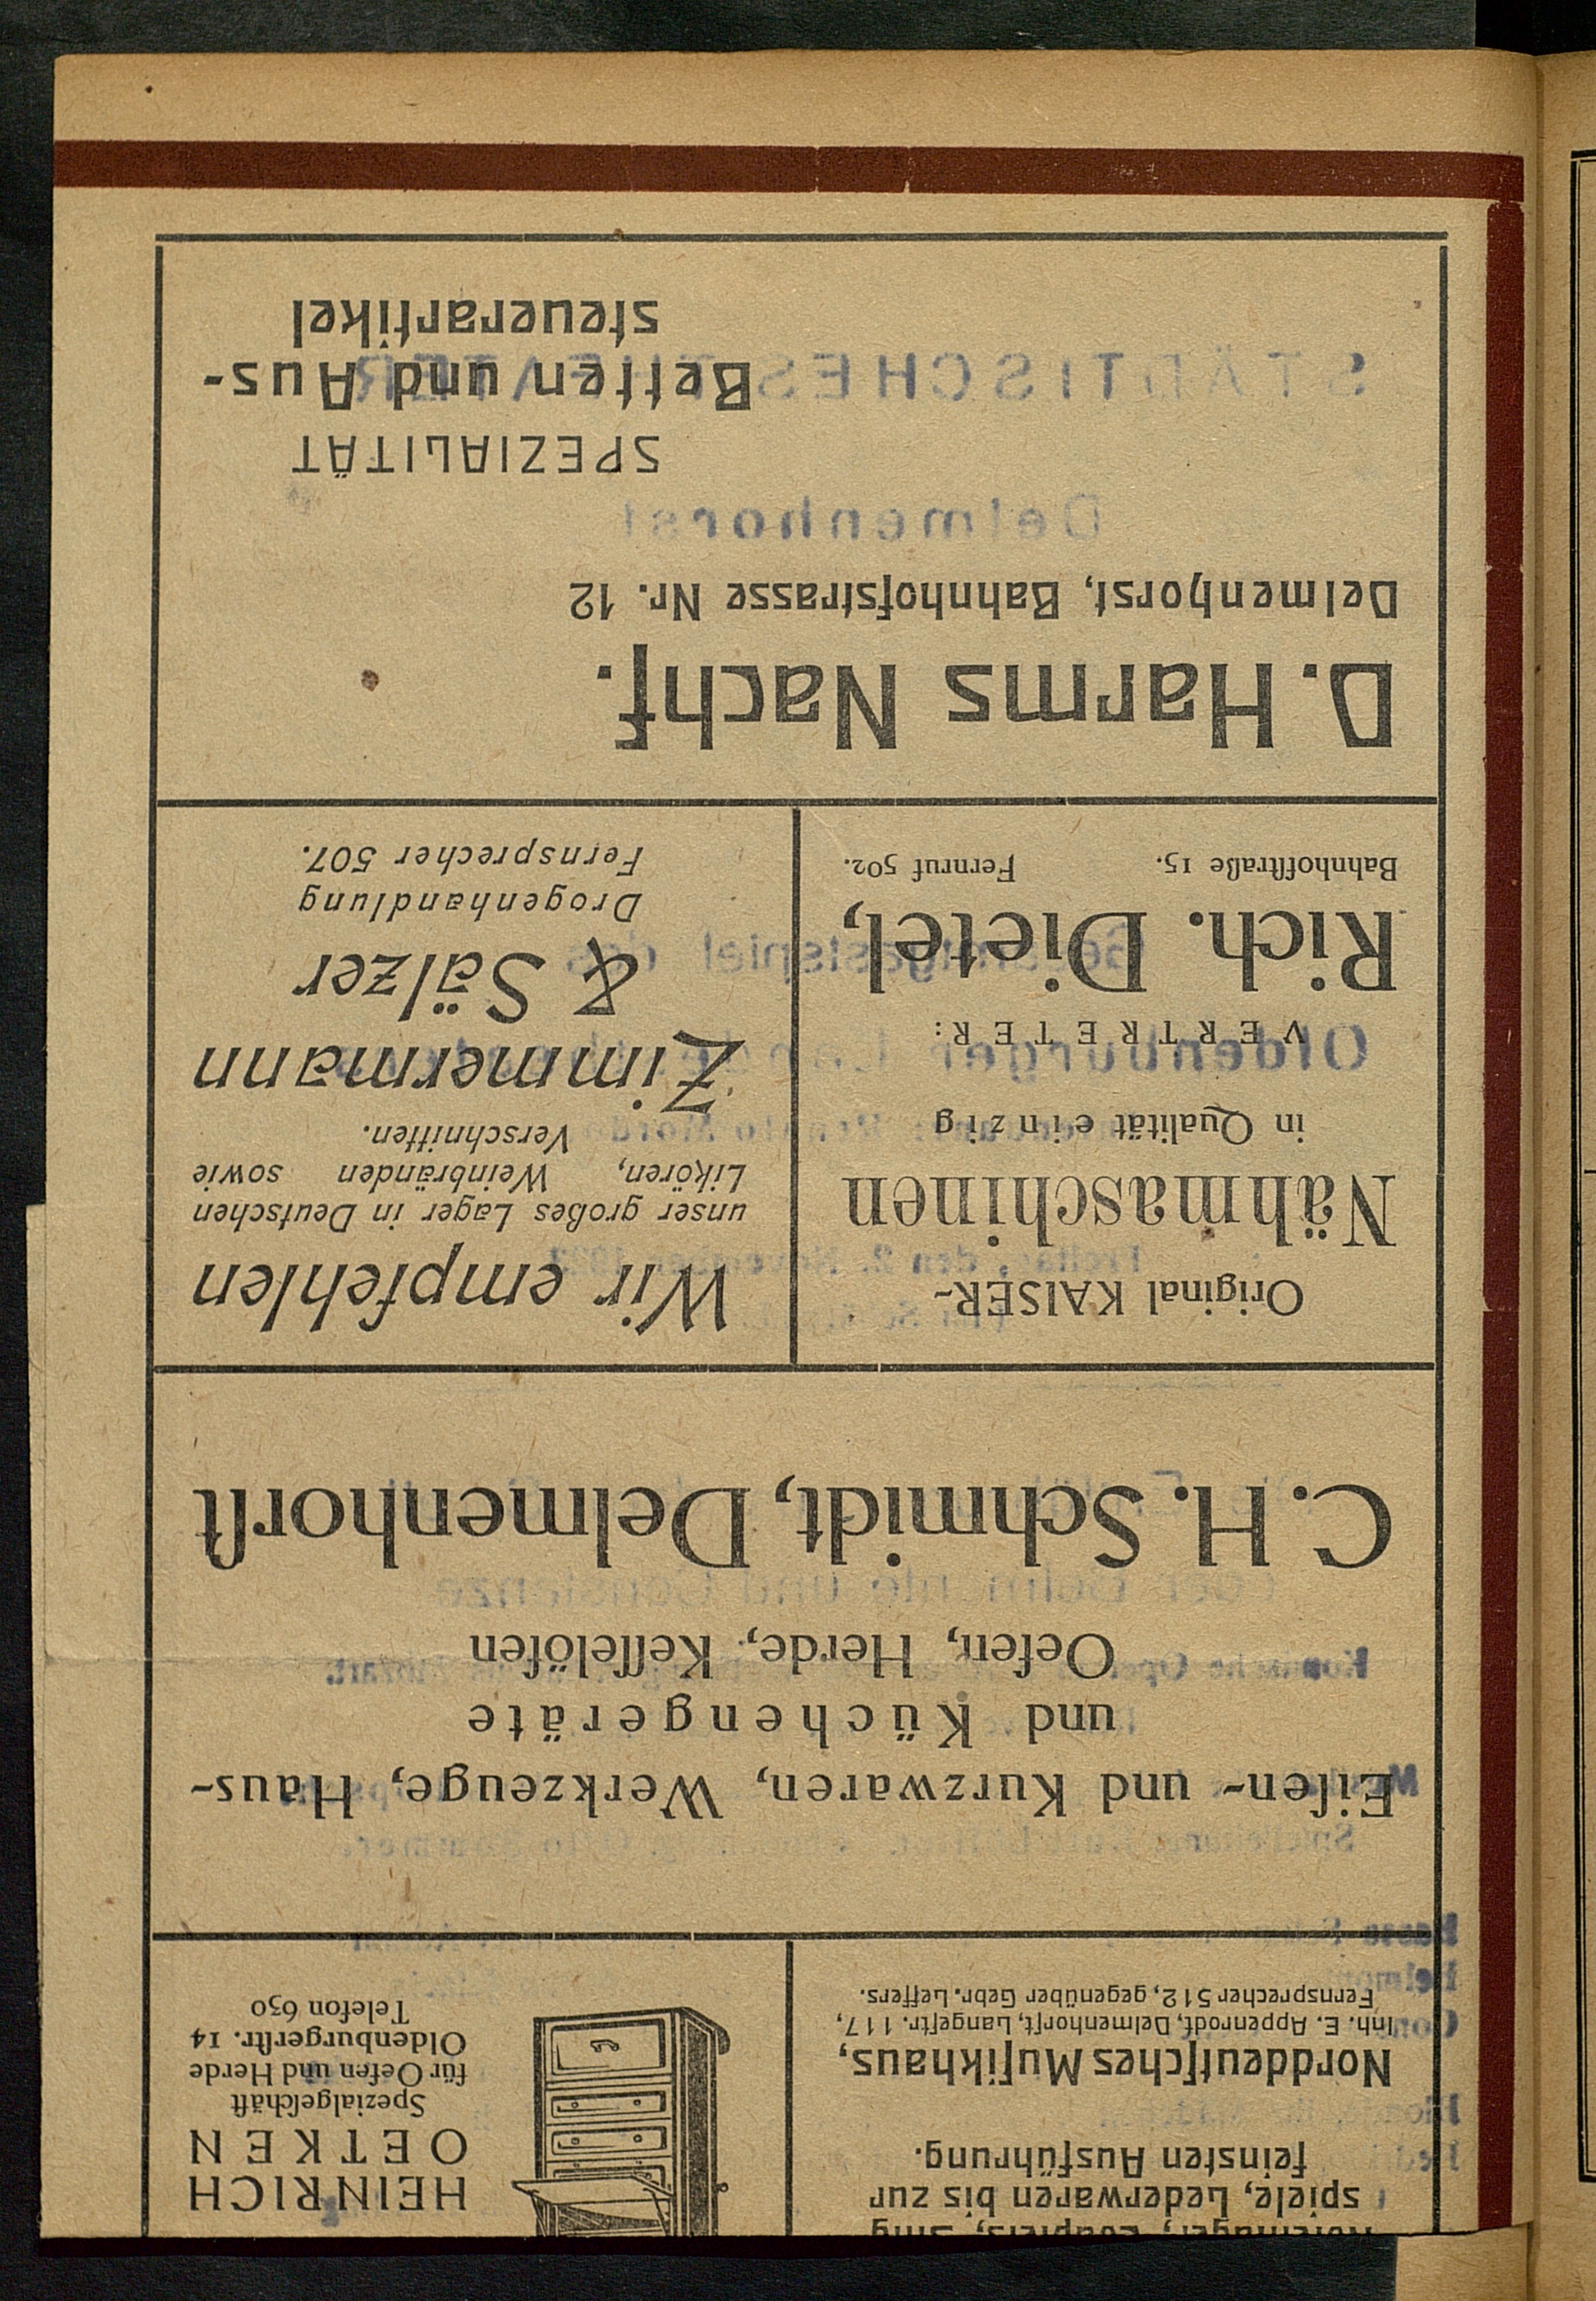 spiele, Lederwaren bis zur
feinsten Ausführung.
Norddeutſches Muſikhaus,
Inh. E. Appenrodt, Delmenhorſt, Langeſtr. 117,
Fernsprecher 512, gegenüber Gebr. Leffers.
HEINRICH
OETKEN
Spezialgeſchäft
für Oefen und Herde
Oldenburgerſtr. 14
Telefon 650
Eiſen- und Kurzwaren, Werkzeuge, Haus-
und Küchengeräte
Oefen, Herde, Keſſelöfen
C. H. Schmidt, Delmenhorſt
Original KAISER-
Nähmaschinen
in Qualität einzig
VERTRETER:
Rich. Dietel,
Bahnhofſtraße 15. Fernruf 502.
Wir empfehlen
unser großes Lager in Deutschen
Likören, Weinbränden sowie
Verschnitten.
Zimmermann
& Sälzer
Drogenhandlung
Fernsprecher 507.
D. Harms Nachf.
Delmenhorst, Bahnhofstrasse Nr. 12
SPEZIALITÄT
Betten und Aus-
steuerartikel